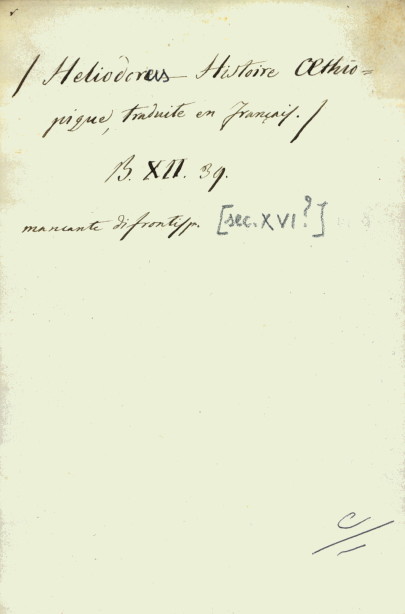 / Heliodorus Histoire Æthio=
pique, traduite en français. /
B. XII. 39.
mancante di frontisp. [sec. XVI?]
C